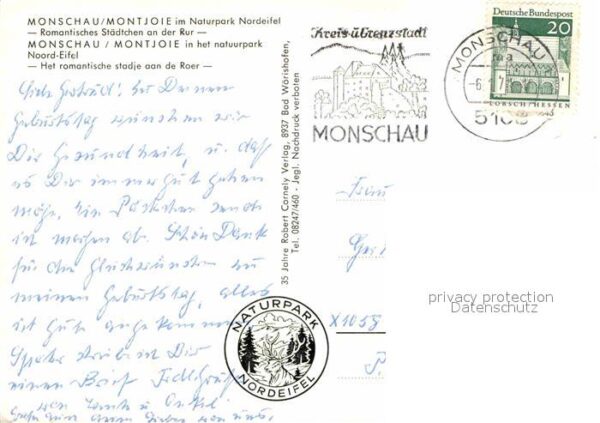 MONSCHAU/MONTJOIE im Naturpark Nordeifel
— Romantisches Städtchen an der Rur —
MONSCHAU / MONTJOIE in het natuurpark
Noord-Eifel
— Het romantische stadje aan de Roer —
Liebe Gertrud! Zu Deinem
Geburtstag wünschen wir
Dir Gesundheit, u. daß
es Dir immer gut gehen
möge. Ein Päckchen
ist morgen ab. Schön Dank
für die Glückwünsche zu
meinem Geburtstag, alles
ist gut angekommen
Später schreibe ich Dir
einen Brief
von Tante u. Onkel
von uns.
35 Jahre Robert Cornely Verlag, 8937 Bad Wörishofen,
Tel. 08247/460 - Jegl. Nachdruck verboten
Kreis- u. Grenzstadt
MONSCHAU
MONSCHAU
ma
-6.
5108
Deutsche Bundespost
20
LORSCH/HESSEN
Frau
privacy protection
Datenschutz
X1058
NATURPARK
NORDEIFEL